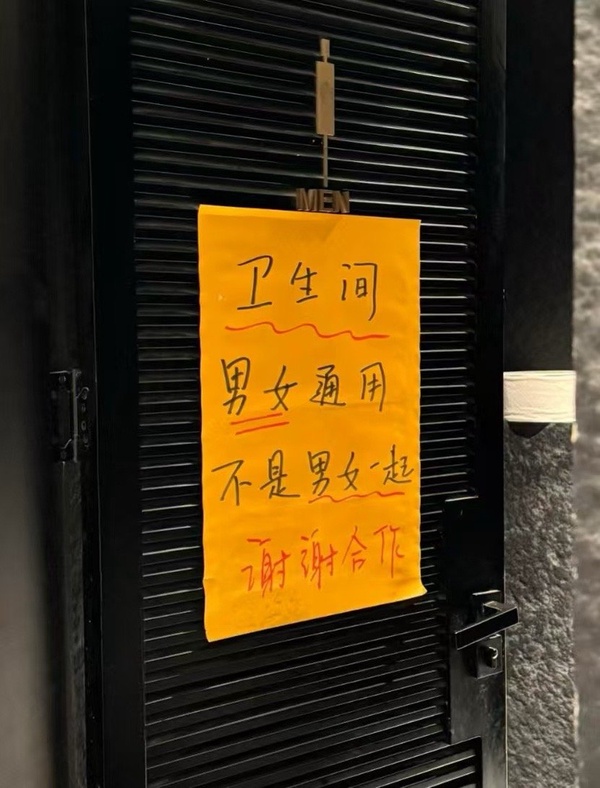 MEN
卫生间
男女通用
不是男女一起
谢谢合作